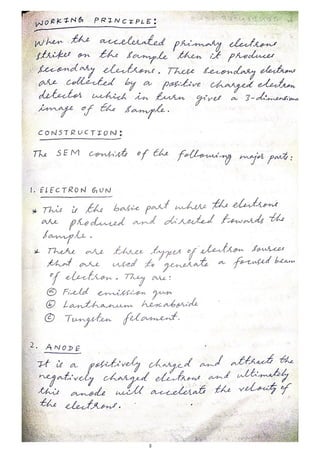 WORKING PRINCIPLE:
When the accelerated primary electrons
strikes on the sample then it produces
secondary electrons. These secondary electrons
are collected by a positive charged electron
detector which in turn gives a 3-dimensional
image of the sample.
CONSTRUCTION:
The SEM consists of the following major parts:
1. ELECTRON GUN
* This is the basic part where the electrons
are produced and directed towards the
sample.
* There are three types of electron sources
that are used to generate a focused beam
of electron. They are:
ⓐ Field emission gun
ⓑ Lanthanum hexaboride
ⓒ Tungsten felament.
2. ANODE
It is a positively charged and attracts the
negatively charged electrons and ultimately
this anode will accelerate the velocity of
the electrons.